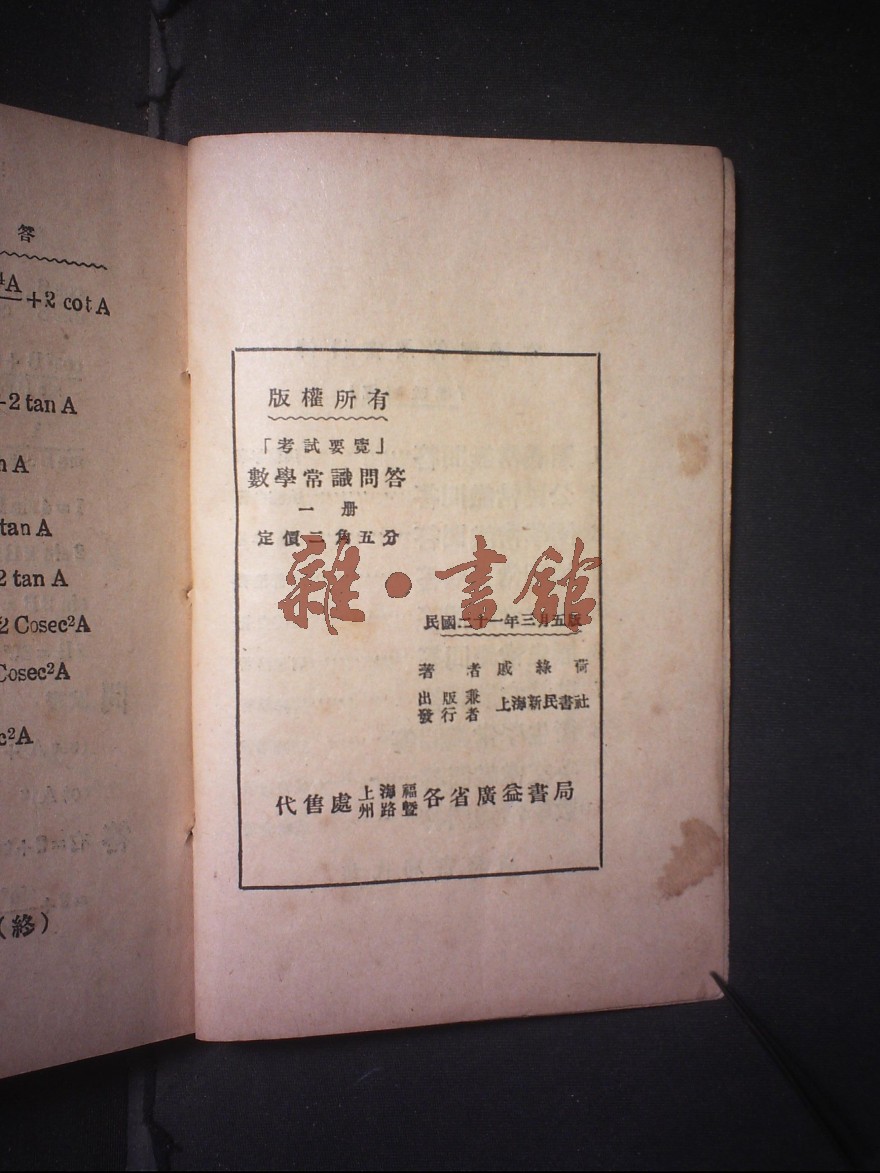 答
+2 cot A
2 tan A
n A
tan A
2 tan A
2 Cosec²A
Cosec²A
c²A
(終)
版權所有
「考試要覽」
數學常識問答
一册
定價二角五分
雜·書館
民國二十一年三月五版
著者戚綠荷
出版兼
發行者
上海新民書社
代售處上海福
州路暨各省廣益書局